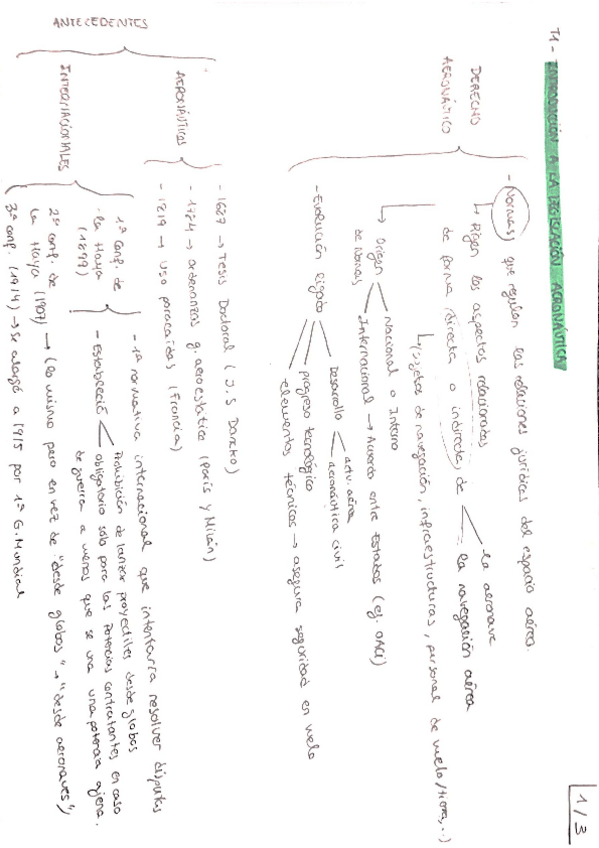 1/3
T1 - INTRODUCCIÓN A LA LEGISLACIÓN AERONÁUTICA
DERECHO
AERONÁUTICO
- Normas que regulan las relaciones jurídicas del espacio aéreo.
↳ Rigen los aspectos relacionados
de forma directa o indirecta de
- la aeronave
- la navegación aérea
↳ sujetos de navegación, infraestructuras, personal de vuelo/tierra,...)
→ Origen
de Normas
Nacional o Interno
Internacional → Acuerdo entre Estados (ej. OACI)
- Evolución ligada
Desarrollo
activ. aérea
aeronáutica civil
progreso tecnológico
elementos técnicos → asegura seguridad en vuelo
ANTECEDENTES
AERONÁUTICOS
- 1687 → Tesis Doctoral (J. S Danzko)
- 1784 → ordenanzas g. aeroestática (París y Milán)
- 1819 → Uso paracaídas (Francia)
INTERNACIONALES
1ª conf. de
la Haya
(1899)
- 1ª normativa internacional que intentaría resolver disputas
- Estableció
Prohibición de lanzar proyectiles desde globos
obligatorio solo para las Potencias contratantes en caso
de guerra a menos que se una una potencia ajena.
2ª conf. de
la Haya (1907) → (lo mismo pero en vez de "desde globos" → "desde aeronaves")
3ª conf. (1914) → se alargó a 1915 por 1ª G. Mundial